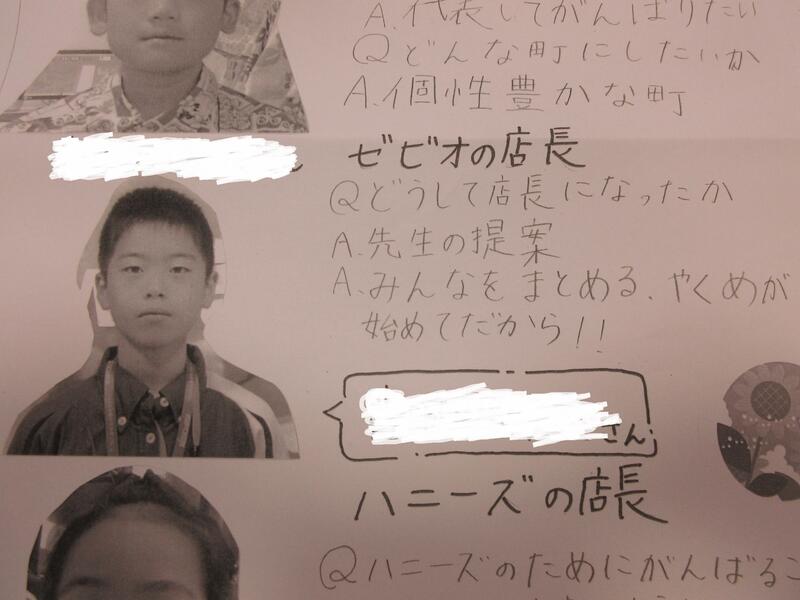 A.代表してがんばりたい
Qどんな町にしたいか
A.個性豊かな町
ゼビオの店長
Qどうして店長になったか
A.先生の提案
A.みんなをまとめる、やくめが
始めてだから!!
さん
ハニーズの店長
Qハニーズのためにがんばるこ